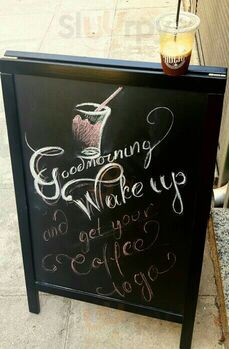 Sluurpy
Goodmorning
Wake up
and get your
Coffee
togo